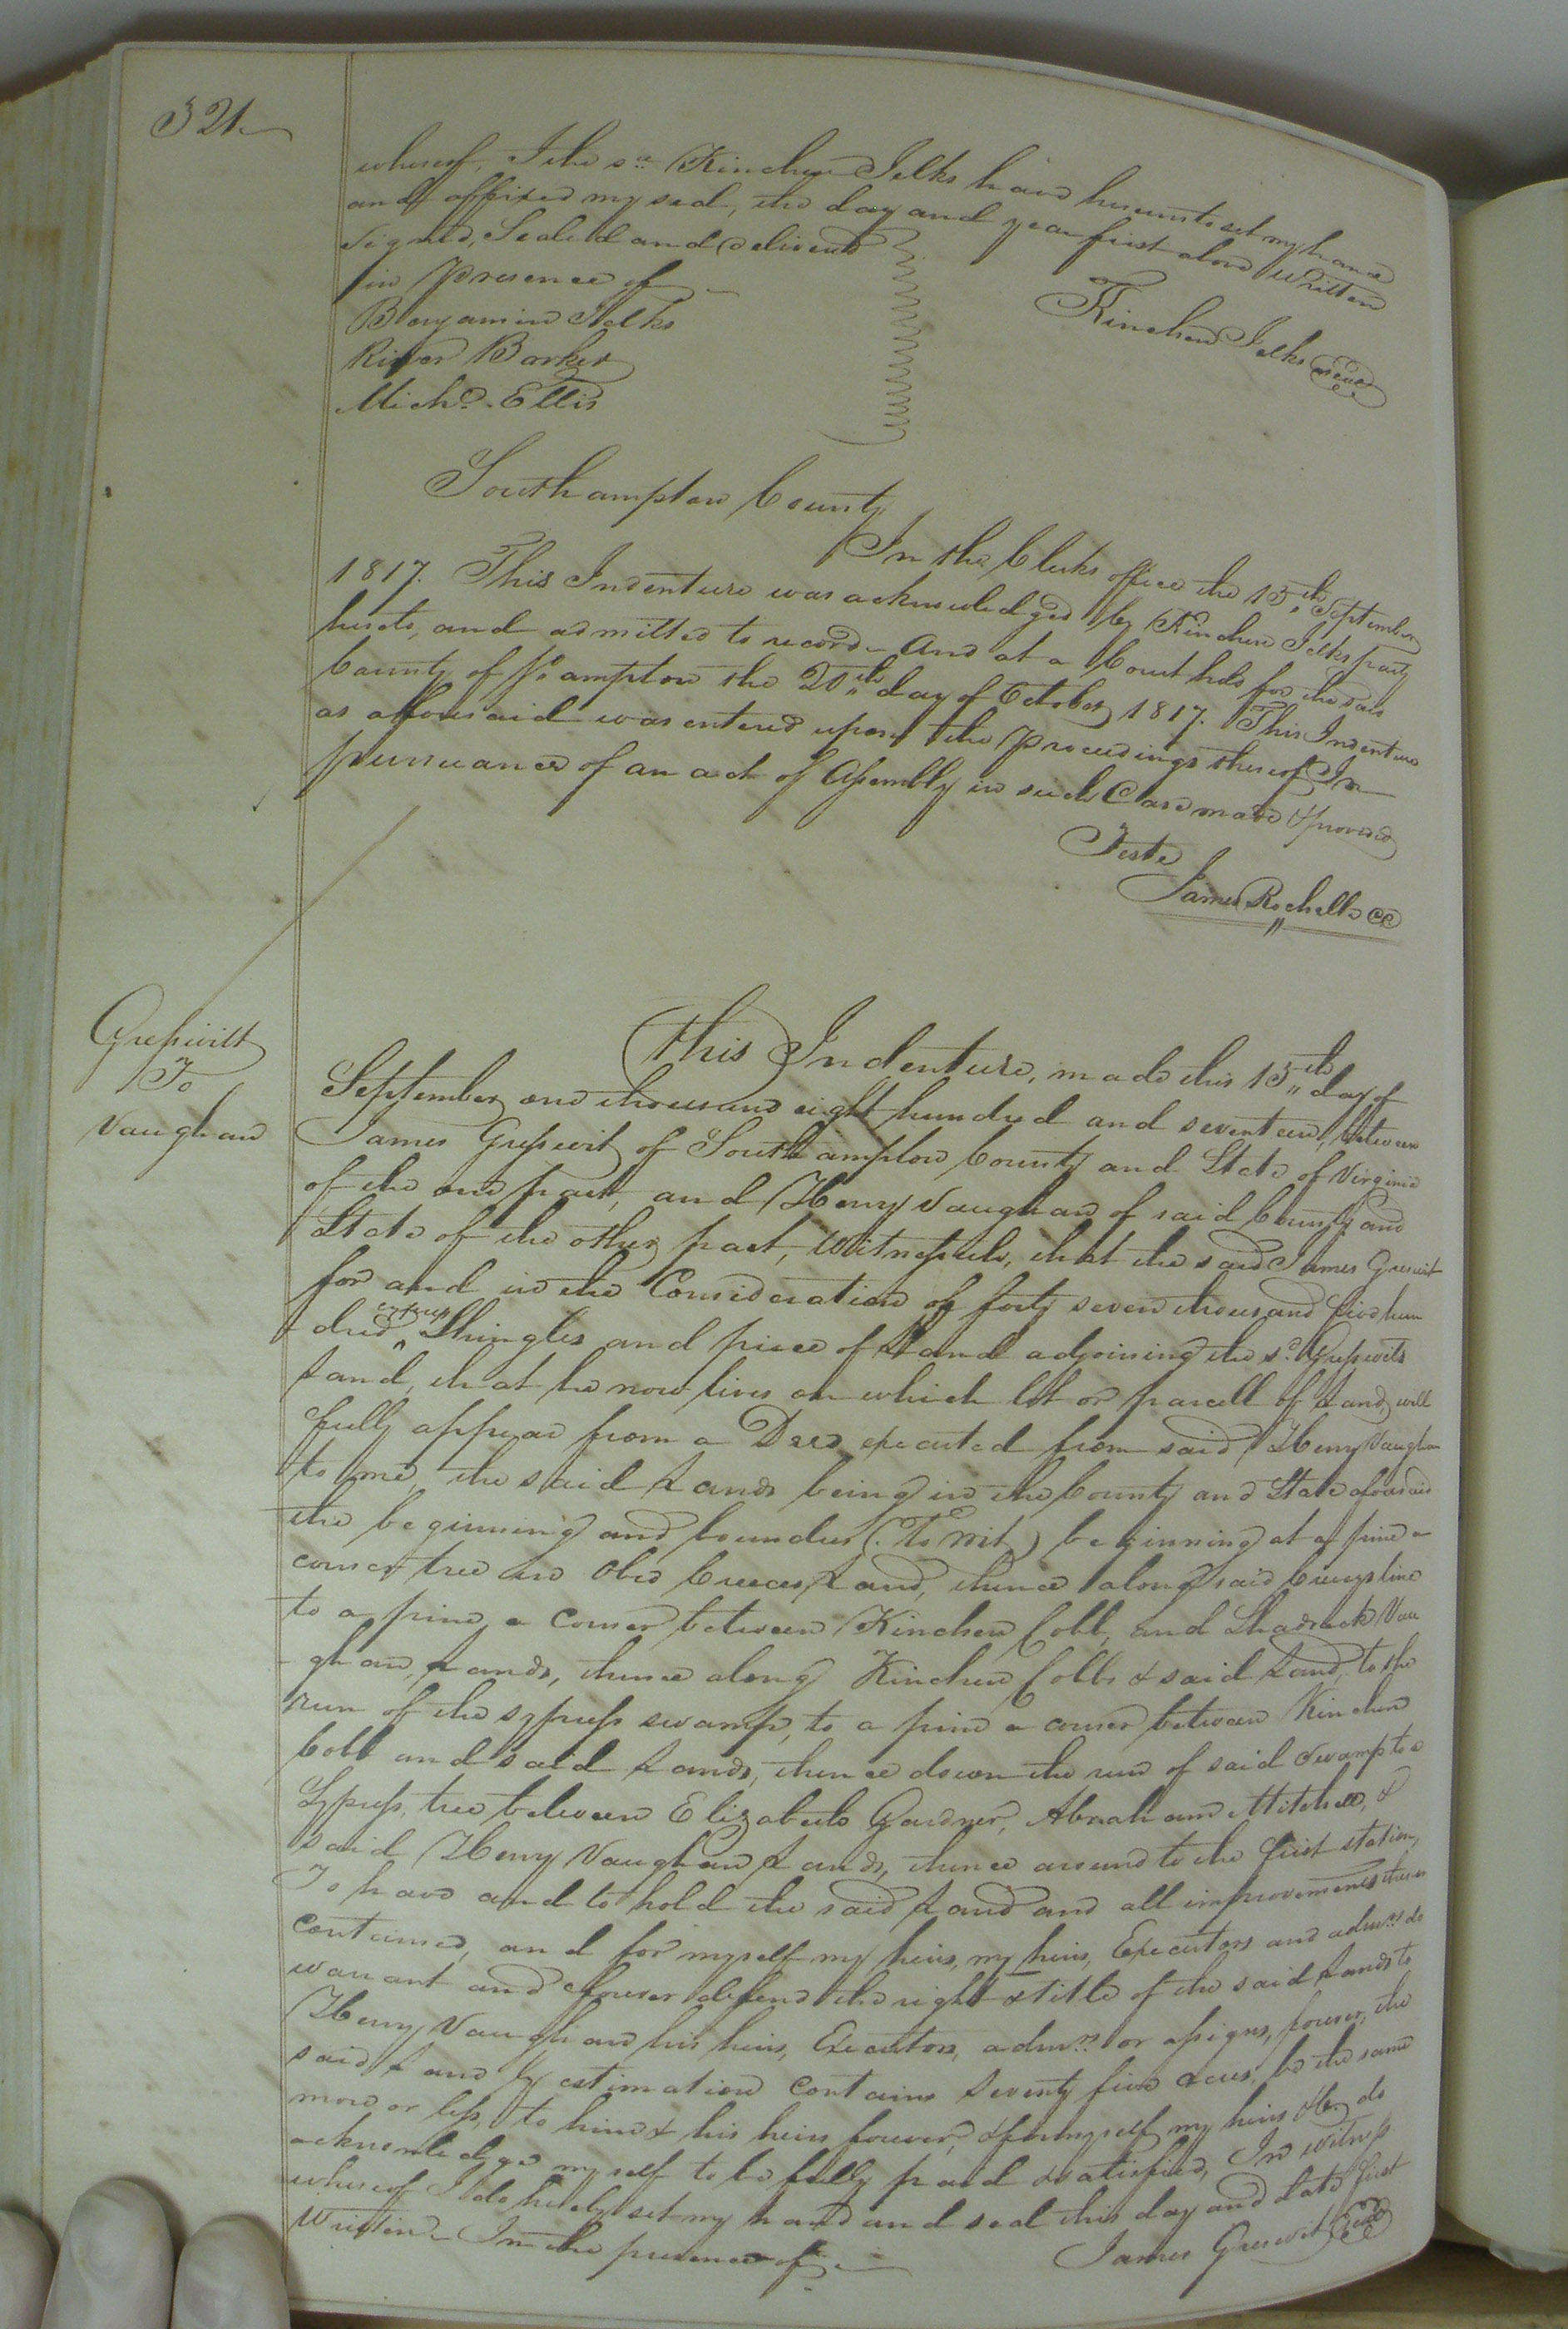 321
whereof, I the sd. Kinchen Jelks have hereunto set my hand
and affixed my seal, the day and year first above written
Signed, Sealed and delivered
in presence of
Benjamin Jelks
Kinchen Jelks Seal
Barker
Michd. Ellis
Southampton County
In the Clerks office the 15th September
1817. This Indenture was acknowledged by Kinchen Jelks party
hereto, and admitted to record. And at a Court held for the said
County of So.ampton the 20th day of October 1817. This Indenture
as afforesaid was entered upon the proceedings thereof In
pursuance of an act of Assembly in such Case made & provided
Teste
James Rochelle CC
Gresswitt
To
Vaughan
This Indenture, made this 15th day of
September one thousand eight hundred and seventeen, between
James Gresswit of Southampton County and State of Virginia
of the one part, and Henry Vaughan of said County and
State of the other part, Witnesseth, that the said James Greswit
for and in the Consideration of forty seven thousand five hun
dred cypress Shingles and piece of Land adjoining the sd. Gresswits
Land, that he now lives on which lot or parcell of Land, will
fully appear from a Deed executed from said Henry Vaughan
to me, the said Lands being in the County and State aforesaid
the beginning and boundes (To wit) beginning at a pine a
corner tree in Obed Land, thence along said line
to a pine a Corner between Kinchen Cobb, and Shadrack Vau
ghan, Lands, thence along Kinchen Cobbs & said Land, to the
run of the sypress swamp, to a pine a corner between Kinchen
Cobb and said Lands, thence down the run of said Swamp to a
Sypress, tree between Elizabeth Gardner, Abraham Mitchell, &
said Henry Vaughan Lands, thence around to the first station,
To have and to hold the said Land and all improvements therein
contained, and for myself my heirs, my heirs, Executors and admrs do
warrant and forever defend the right & title of the said Lands to
Henry Vaughan his heirs, Executors, admrs or assigns, forever, the
said Land by estimation contains seventy five acres, be the same
more or less, to him & his heirs forever, & for myself my heirs &c do
acknowledge myself to be fully paid & satisfied, In witness
whereof I do hereby set my hand and seal this day and date first
Written In the presence of
James Greswit Seal